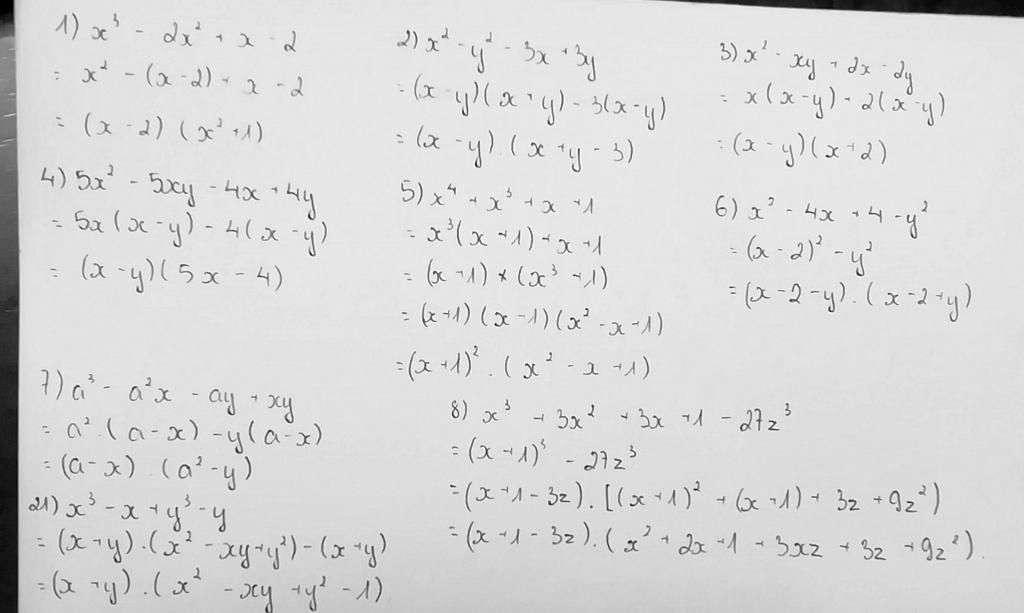 1) x³ - 2x² + x - 2
= x² - (x - 2) + x - 2
= (x - 2) (x² + 1)
2) x² - y² - 3x + 3y
= (x - y)(x + y) - 3(x - y)
= (x - y) . (x + y - 3)
3) x² - xy + 2x - 2y
= x(x - y) + 2(x - y)
= (x - y)(x + 2)
4) 5x² - 5xy - 4x + 4y
= 5x(x - y) - 4(x - y)
= (x - y)(5x - 4)
5) x⁴ + x³ + x + 1
= x³(x + 1) + x + 1
= (x + 1) * (x³ + 1)
= (x + 1) (x + 1)(x² - x + 1)
= (x + 1)² . (x² - x + 1)
6) x² - 4x + 4 - y²
= (x - 2)² - y²
= (x - 2 - y) . (x - 2 + y)
7) a³ - a²x - ay + xy
= a² . (a - x) - y(a - x)
= (a - x) . (a² - y)
8) x³ + 3x² + 3x + 1 - 27z³
= (x + 1)³ - 27z³
= (x + 1 - 3z) . [(x + 1)² + (x + 1) + 3z + 9z²)
= (x + 1 - 3z) . (x² + 2x + 1 + 3xz + 3z + 9z²).
21) x³ - x + y³ - y
= (x + y) . (x² - xy + y²) - (x + y)
= (x + y) . (x² - xy + y² - 1)